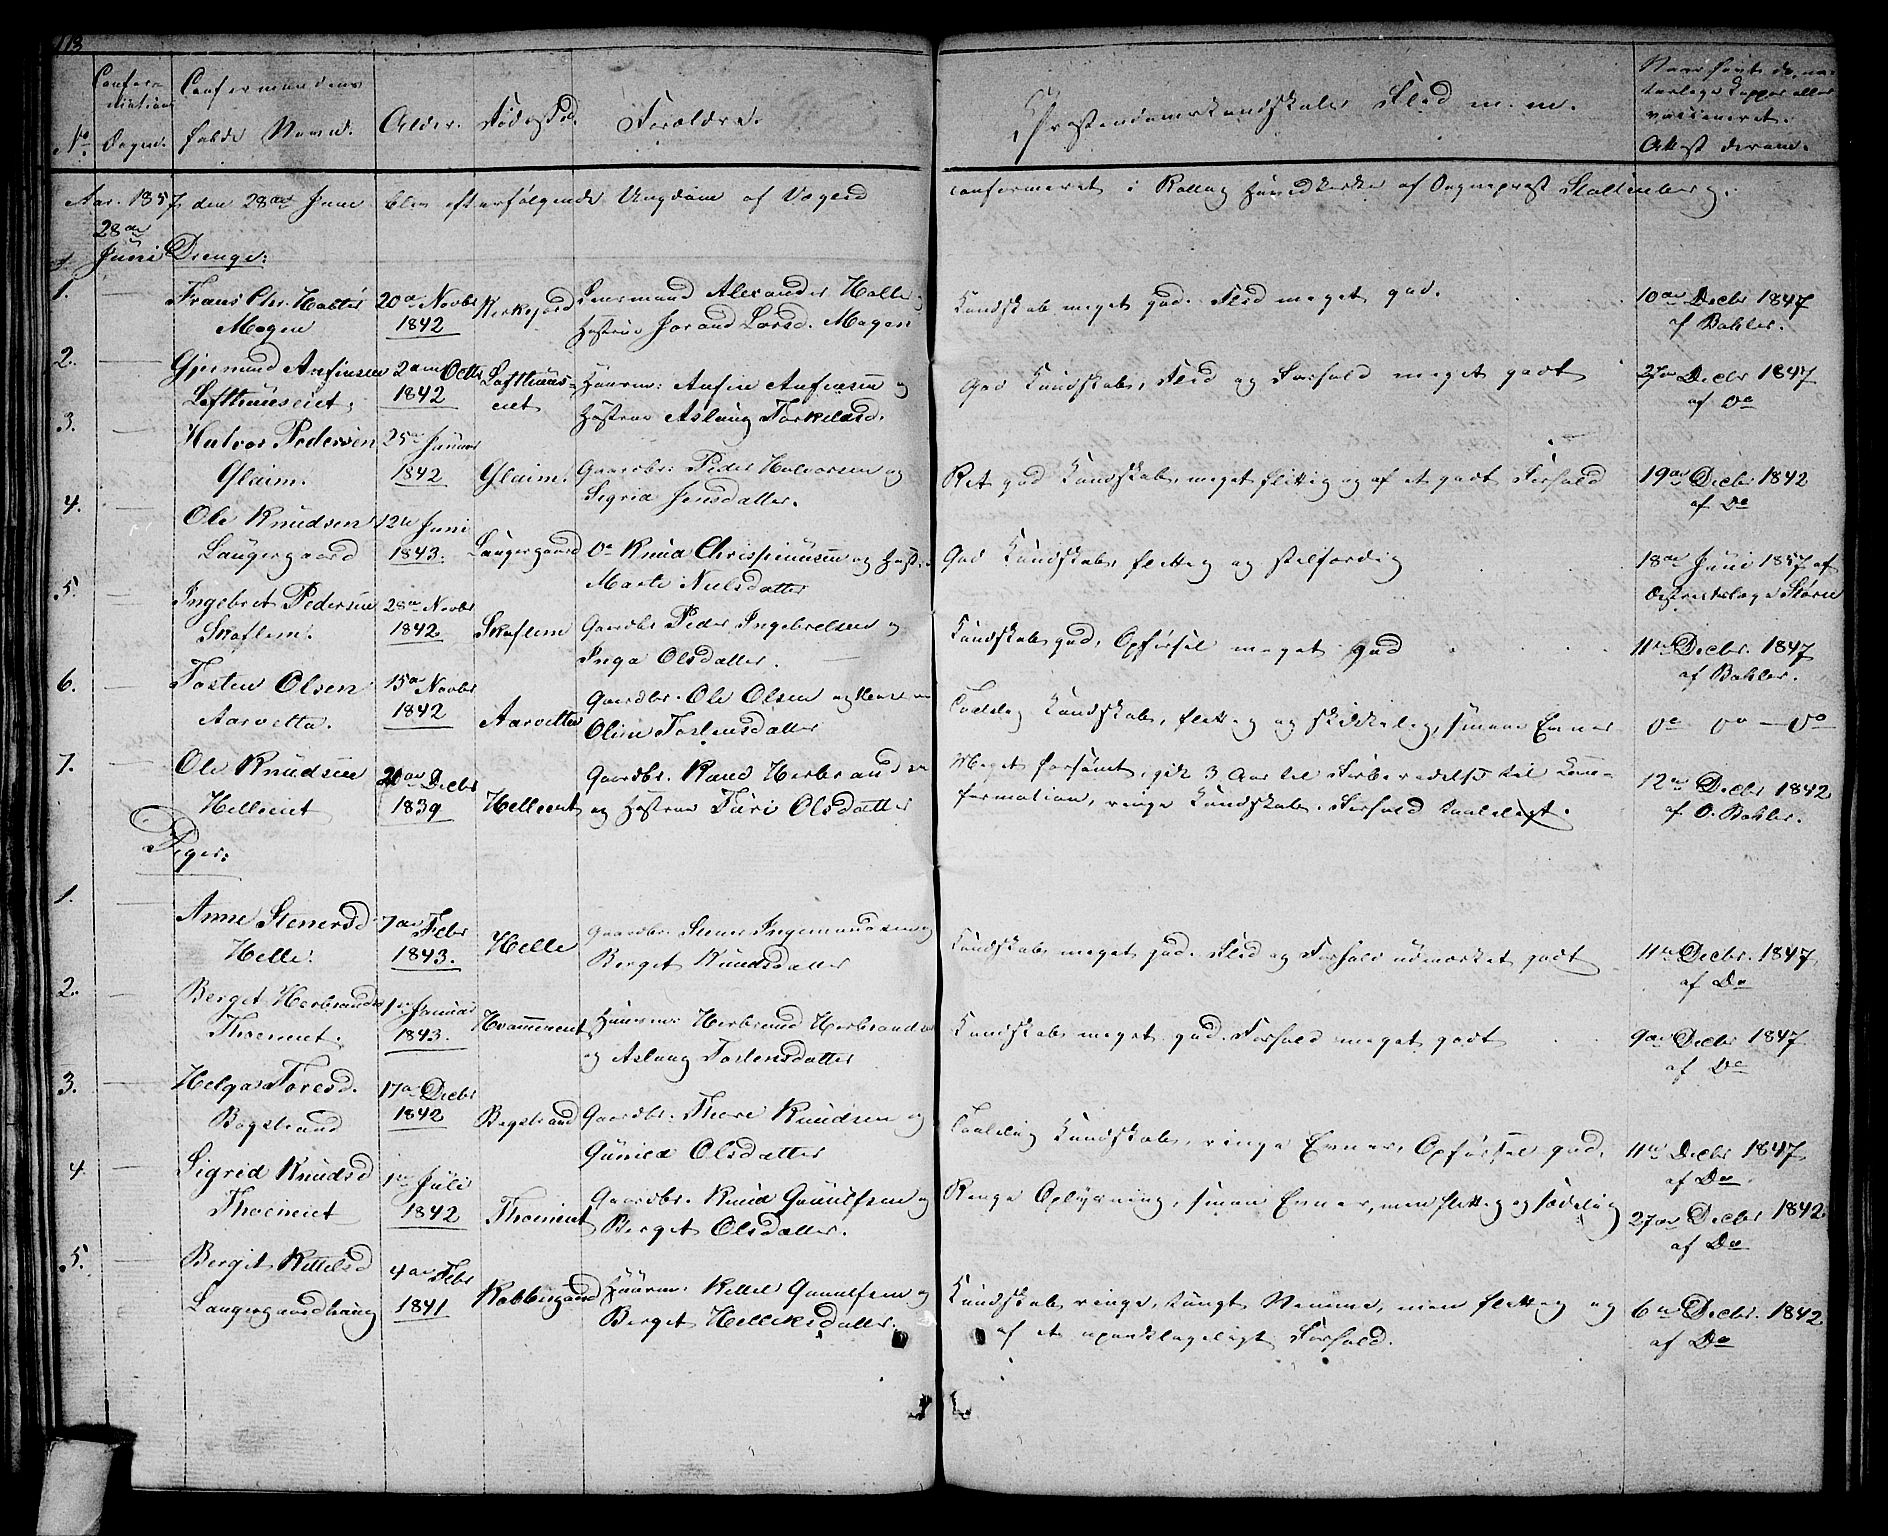 113
No
Confirmations Dagen.
Confirmandens fulde Navn.
Alder.
Fødested.
Forældre.
Christendomskundskaber Flid m. m.
Naar havt de naturlige Kopper eller vaccineret. Attest derom.
Aar 1857, den 28de Juni blev efterfølgende Ungdom af Vægerd confirmeret i Rollag Hovedkirke af Sognepræst Stoltenberg.
28de Juni
Drenge:
1. Frans Chr. Halter Mogen
20de Novbr 1842
Kirkejord
Lensmand Alexander Halter og
Hustrue Jorand Larsd. Mogen
Kundskab meget god. Flid meget god.
10de Decbr 1847
af Bahler.
2. Gjermund Anfinsen Lofthuuseiet.
2den Octbr 1842
Lofthuuseiet
Huusm: Anfin Anfinsen og
Hustrue Aslaug Torkelsd.
God Kundskab, Flid og Forhold meget godt
27de Decbr 1847
af Do
3. Halvor Pedersen Glaim.
25de Januar 1842
Glaim.
Gaardbr: Peder Halvorsen og
Sigrid Jensdatter.
Ret god Kundskab, meget flittig og af et godt Forhold
19de Decbr 1842
af Do
4. Ole Knudsen Laugergaard
12te Juni 1843.
Laugergaard
Do Knud Christiansen og Hustr.
Marte Nielsdatter
God Kundskab, flittig og stilfærdig
18de Juni 1857 af
Districtslæge Støren
5. Ingebret Pedersen Skaflem.
28de Novbr 1842.
Skaflem
Gaardbr. Peder Ingebretsen og
Inga Olsdatter.
Kundskab god, Opførsel meget god
11te Decbr. 1847
af Bahler.
6. Tosten Olsen Aarvetta.
15de Novbr 1842
Aarvetta
Gaardbr. Ole Olsen og Hustrue
Oline Tostensdatter
Taalelig Kundskab, flittig og skikkelig, smaae Evner
Do Do — Do
7. Ole Knudsen Helleeiet
20de Decbr 1839
Helleeiet
Gaardbr. Knud Herbrandsen
og Hustrue Turi Olsdatter
Meget forsømt, gik 3 Aar til Forberedelse til Con-
firmation, ringe Kundskab. Forhold taaleligt.
12te Decbr 1842
af O. Bahler.
Piger:
1. Anne Stenersd Helle.
7de Febr 1843.
Helle
Gaardbr. Stener Ingemundsen og
Berget Knudsdatter
Kundskab meget god. Flid og Forhold udmærket godt
11te Decbr. 1847
af Do
2. Berget Herbrandsd Thoeneiet.
1ste Januar 1843.
Hvammeneiet
Huusm: Herbrand Herbrandsen
og Aslaug Tostensdatter
Kundskab meget god. Forhold meget godt
9de Decbr 1847
af Do
3. Helga Toresd. Bogstrand
17de Decbr 1842
Bogstrand
Gaardbr. Thore Knudsen og
Gunild Olsdatter
Taalelig Kundskab, ringe Evner, Opførsel god.
11te Decbr 1847
af Do
4. Sigrid Knudsd Thoeneiet
1ste Juli 1842
Thoeneiet
Gaardbr. Knud Gunulfsen og
Berget Olsdatter.
Ringe Oplysning, smaae Evner, men flittig og sædelig
27de Decbr 1842.
af Do
5. Bergit Kittilsd Laugergaardhaug
4de Febr 1841
Kobbergaard
Huusm. Kittel Gunulfsen og
Berget Helliksdatter.
Kundskab ringe, tungt Nemme, men flittig og
af et upaaklageligt Forhold.
6te Decbr. 1842
af Do